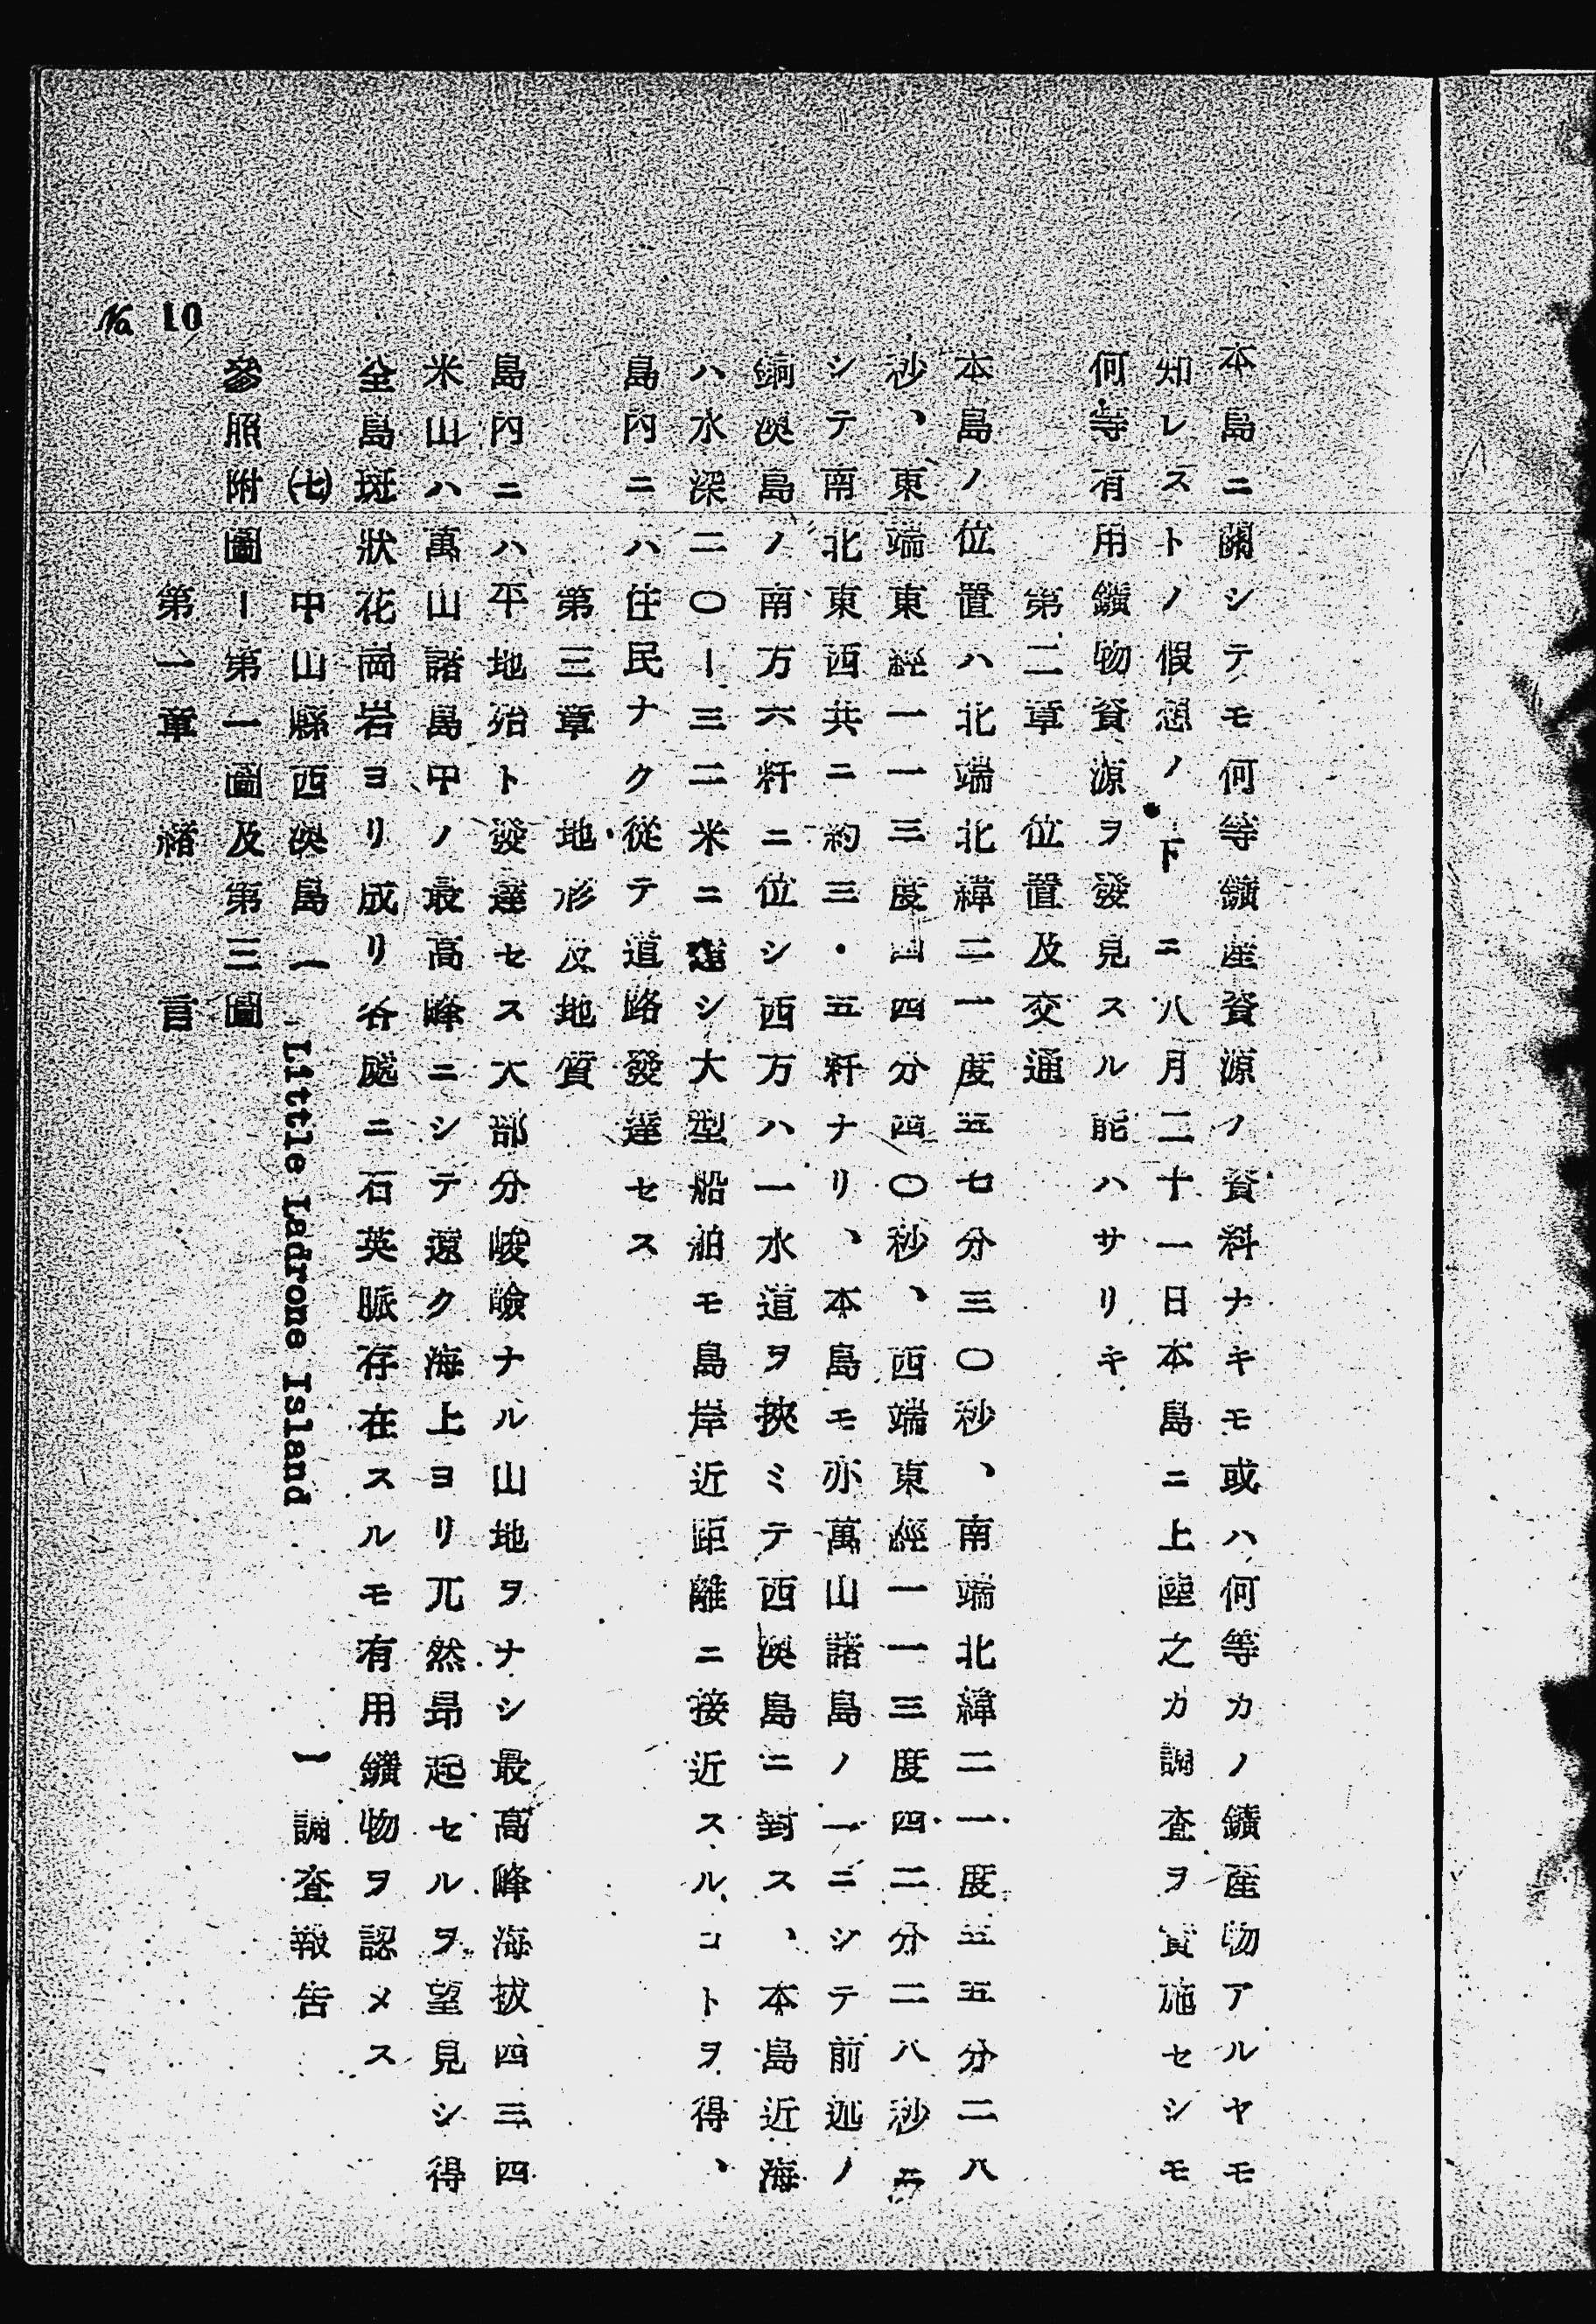 本島ニ關シテモ何等鑛産資源ノ資料ナキモ或ハ何等カノ鑛産物アルヤモ
知レストノ假想ノ下ニ八月二十一日本島ニ上陸之カ調査ヲ實施セシモ
何等有用鑛物資源ヲ發見スル能ハサリキ
第二章 位置及交通
本島ノ位置ハ北端北緯二一度五七分三〇秒、南端北緯二一度五五分二八
秒、東端東經一一三度四四分四〇秒、西端東經一一三度四二分二八秒ニ
シテ南北東西共ニ約三・五粁ナリ、本島モ亦萬山諸島ノ一ニシテ前述ノ
銅澳島ノ南方六粁ニ位シ西方ハ一水道ヲ挾ミテ西澳島ニ對ス、本島近海
ハ水深二〇ー三二米ニ達シ大型船舶モ島岸近距離ニ接近スルコトヲ得、
島内ニハ住民ナク從テ道路發達セス
第三章 地形及地質
島内ニハ平地殆ト發達セス大部分峻嶮ナル山地ヲナシ最高峰海拔四三四
米山ハ萬山諸島中ノ最高峰ニシテ遠ク海上ヨリ兀然昻起セルヲ望見シ得
全島斑狀花崗岩ヨリ成リ各處ニ石英脈存在スルモ有用鑛物ヲ認メス
(七) 中山縣西澳島ー Little Ladrone Island ー調査報告
參照附圖ー第一圖及第三圖
第一章 緖言
No 10